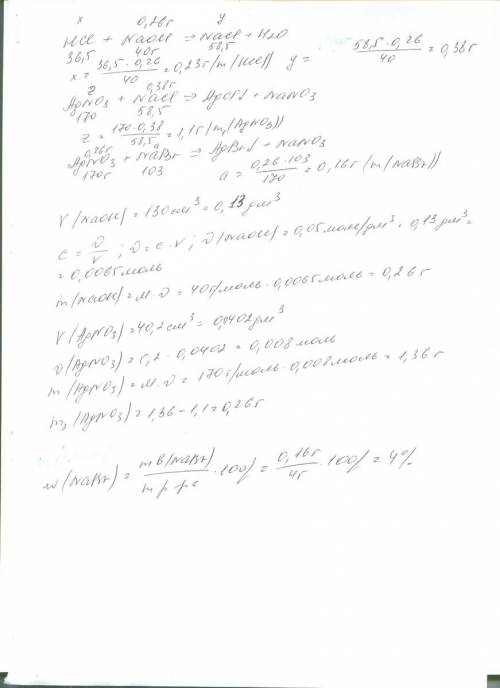 x 0,26г y
HCl + NaOH → NaCl + H₂O
36,5 40г 58,5
x = 36,5 · 0,26 / 40 = 0,23г (m(HCl)) y = 58,5 · 0,26 / 40 = 0,38г
z 0,38г
AgNO₃ + NaCl → AgCl↓ + NaNO₃
170 58,5
z = 170 · 0,38 / 58,5 = 1,1г (m₁(AgNO₃))
0,26г a
AgNO₃ + NaBr → AgBr↓ + NaNO₃
170г 103 a = 0,26 · 103 / 170 = 0,16г (m(NaBr))
V(NaOH) = 130 см³ = 0,13 дм³
c = υ / V ; υ = c · V ; υ(NaOH) = 0,05 моль/дм³ · 0,13 дм³ =
= 0,0065 моль
m(NaOH) = M · υ = 40г/моль · 0,0065 моль = 0,26г
V(AgNO₃) = 40,2 см³ = 0,0402 дм³
υ(AgNO₃) = 0,2 · 0,0402 = 0,008 моль
m(AgNO₃) = M · υ = 170 г/моль · 0,008 моль = 1,36г
m₂(AgNO₃) = 1,36 - 1,1 = 0,26г
w(NaBr) = m в(NaBr) / m р-ра · 100% = 0,16г / 4г · 100% = 4%